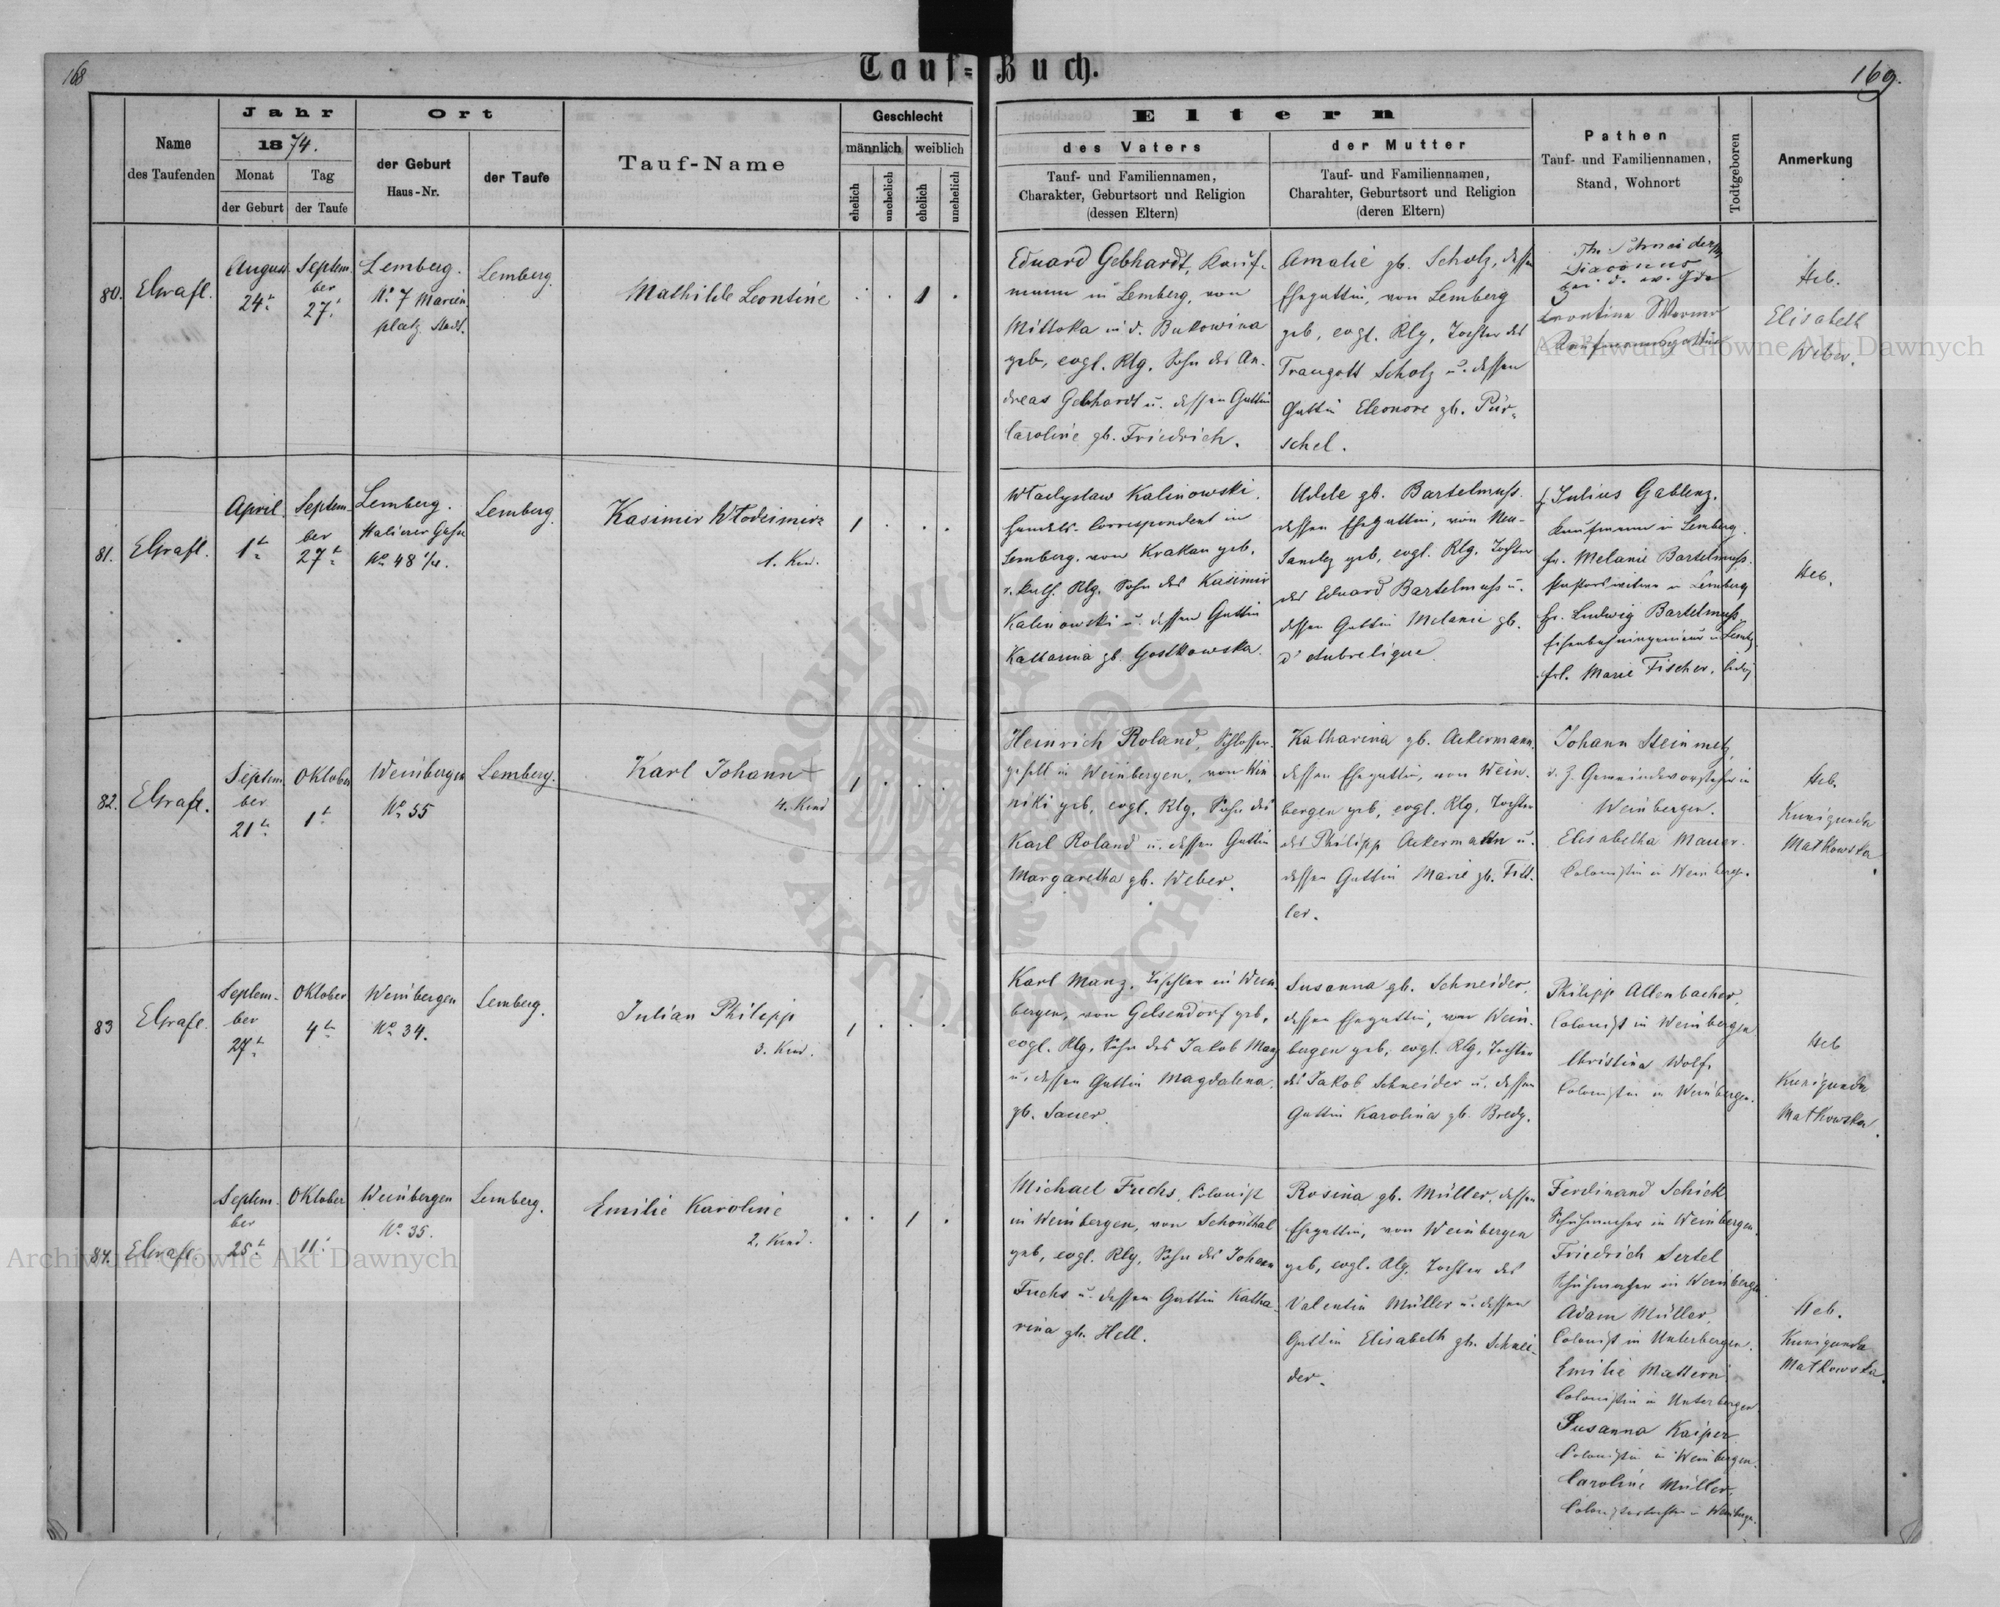 168
Tauf-Buch.
169.
Name
des Taufenden
Jahr
1874.
Monat
der Geburt
Tag
der Taufe
Ort
der Geburt
Haus-Nr.
der Taufe
Tauf-Name
Geschlecht
männlich
weiblich
ehelich
unehelich
ehelich
unehelich
Eltern
des Vaters
Tauf- und Familiennamen,
Charakter, Geburtsort und Religion
(dessen Eltern)
der Mutter
Tauf- und Familiennamen,
Charahter, Geburtsort und Religion
(deren Eltern)
Pathen
Tauf- und Familiennamen,
Stand, Wohnort
Todtgeboren
Anmerkung
80.
August
24t
Septem
ber
27t
Lemberg.
No 7 Marien
platz Stadt.
Lemberg.
Mathilde Leontine
1
Eduard Gebhardt, Kauf-
mann in Lemberg, von
Mittoka in d. Bukowina
geb, evgl. Rlg. Sohn des An-
dreas Gebhardt u. dessen Gattin
Caroline gb. Friedrich.
Amalie gb. Scholz, dessen
Ehegattin, von Lemberg
geb, evgl. Rlg, Tochter des
Traugott Scholz u. dessen
Gattin Eleonore gb. Pür-
schel.
Leontine Werner
Kaufmannsgattin
Heb.
Elisabeth
Weber.
81.
April
1t
Septem
ber
27t
Lemberg.
Halicner Gasse
No 48 1/4.
Lemberg.
Kasimir Włodzimirz
1. Kind.
1
Władysław Kalinowski,
Handels-Correspondent in
Lemberg, von Krakau geb,
r. kath. Rlg. Sohn des Kasimir
Kalinowski u. dessen Gattin
Katharina gb. Gostkowska.
Adele gb. Bartelmuss
dessen Ehegattin, von Neu-
Sandez geb, evgl. Rlg. Tochter
des Eduard Bartelmuss u.
dessen Gattin Melanie gb.
d'Aubrelique
H. Julius Gablenz,
Kaufmann in Lemberg.
Fr. Melanie Bartelmuss
Pastorswitwe in Lemberg
Hr. Ludwig Bartelmuss
Eisenbahningenieur in Lembg.
Frl. Marie Fischer, ledig
Heb.
82.
Septem
ber
21t
Oktober
1t
Weinbergen
No 35
Lemberg.
Karl Johann
4. Kind
1
Heinrich Roland, Schlosser-
gesell in Weinbergen, von Win
niki geb, evgl. Rlg, Sohn des
Karl Roland u. dessen Gattin
Margaretha gb. Weber.
Katharina gb. Ackermann,
dessen Ehegattin, von Wein-
bergen geb, evgl. Rlg, Tochter
des Philipp Ackermann u.
dessen Gattin Marie gb. Titt-
ler.
Johann Steinmetz
d. Z. Gemeindevorsteher in
Weinbergen.
Elisabetha Mauer
Colonistin in Weinbergen.
Heb.
Kunigunda
Matkowska
83
Septem-
ber
27t
Oktober
4t
Weinbergen
No 34.
Lemberg.
Julian Philipp
3. Kind.
1
Karl Manz, Tischler in Wein
bergen, von Gelsendorf geb,
evgl. Rlg, Sohn des Jakob Manz
u. dessen Gattin Magdalena
gb. Sauer.
Susanna gb. Schneider,
dessen Ehegattin, von Wein-
bergen geb, evgl. Rlg, Tochter
des Jakob Schneider u. dessen
Gattin Karolina gb. Bredy.
Philipp Altenbacher,
Colonist in Weinbergen
Christina Wolf,
Colonistin in Weinbergen.
Heb
Kunigunda
Matkowska.
84.
Septem
ber
25t
Oktober
11t
Weinbergen
No 35.
Lemberg.
Emilie Karoline
2. Kind.
1
Michael Fuchs, Colonist
in Weinbergen, von Schönthal
geb, evgl. Rlg, Sohn des Johann
Fuchs u. dessen Gattin Katha-
rina gb. Hell.
Rosina gb. Müller, dessen
Ehegattin, von Weinbergen
geb, evgl. Rlg, Tochter des
Valentin Müller u. dessen
Gattin Elisabeth gb. Schnei-
der.
Ferdinand Schick
Schuhmacher in Weinbergen.
Friedrich Sertel
Schuhmacher in Weinbergen.
Adam Müller,
Colonist in Unterbergen.
Emilie Mattern
Colonistin in Unterbergen
Susanna Kaiper
Colonistin in Weinbergen.
Caroline Müller,
Colonistentochter in Weinbergen.
Heb.
Kunigunda
Matkowska.
Archiwum Główne Akt Dawnych
Archiwum Główne Akt Dawnych
ARCHIWUM GŁÓWNE AKT DAWNYCH